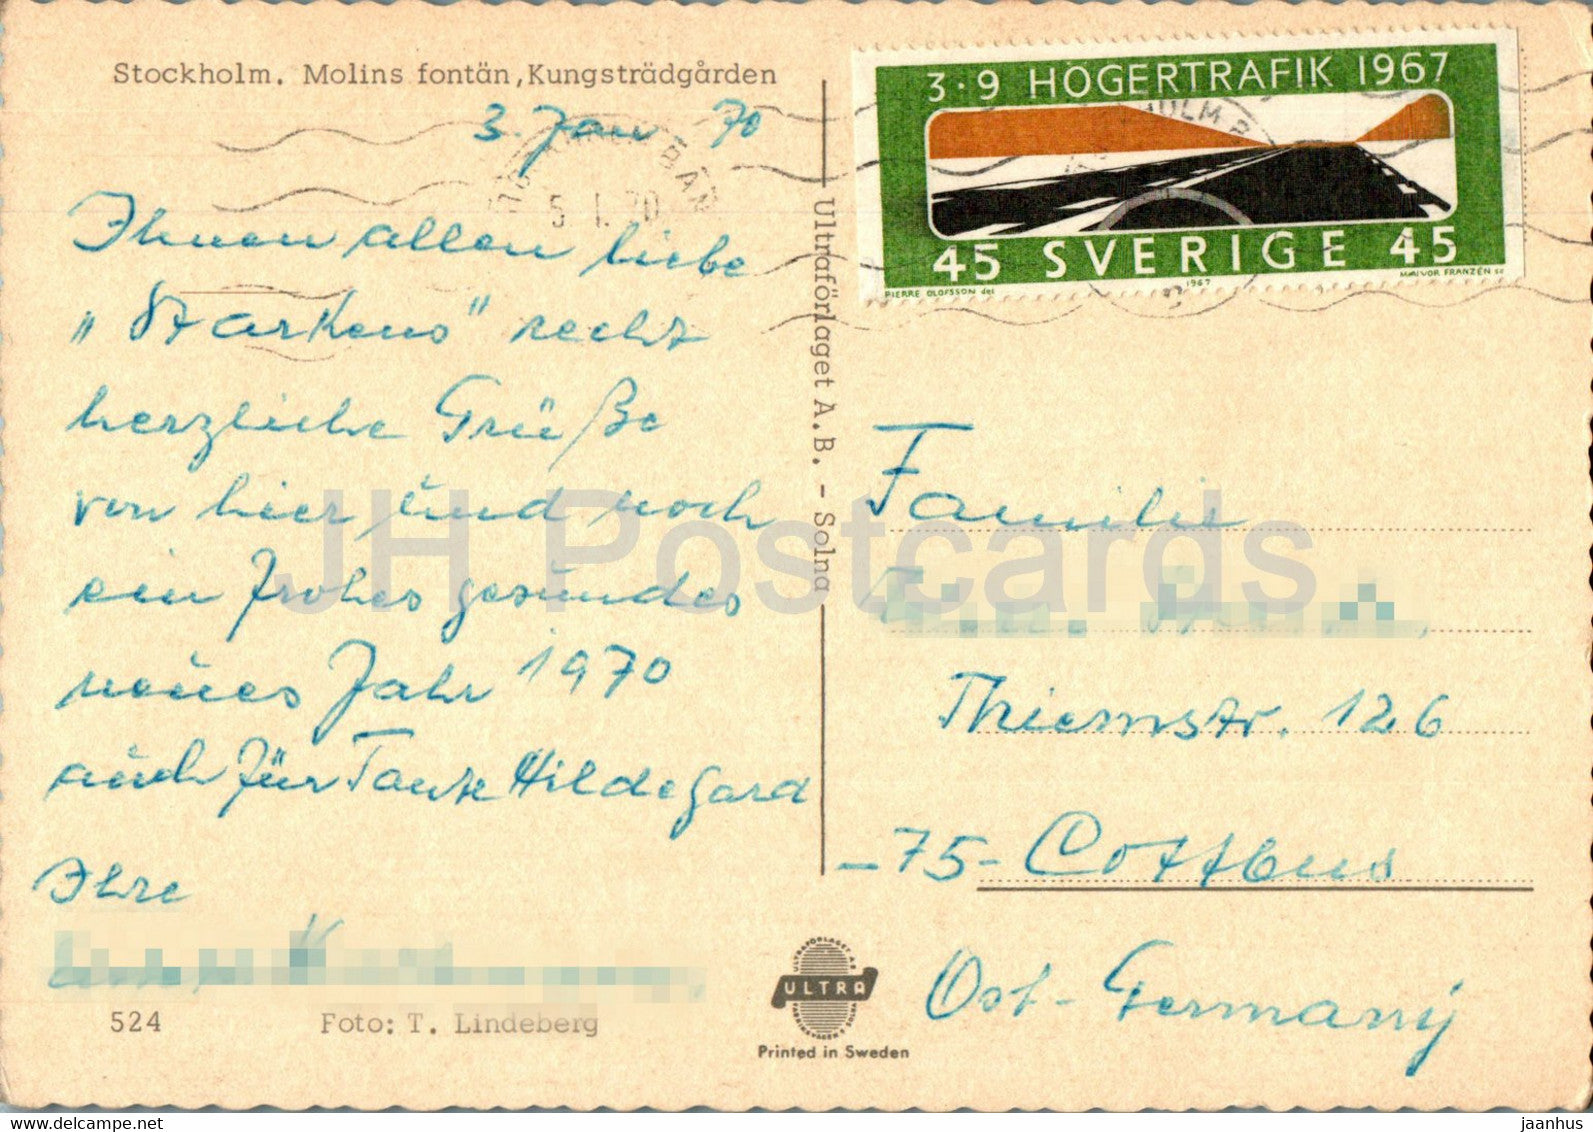 Stockholm. Molins fontän, Kungsträdgården
3. Jan 70
Ihnen allen liebe
„Starkens“ recht
herzliche Grüße
von hier und noch
ein frohes gesundes
neues Jahr 1970
auch für Tante Hildegard
Ihre
524 Foto: T. Lindeberg
Ultraförlaget A.B. - Solna
ULTRA
Printed in Sweden
3·9 HÖGERTRAFIK 1967
45 SVERIGE 45
PIERRE OLOFSSON del 1967 MAJVOR FRANZÉN sc
5.1.70
Familie
Thiemstr. 126
-75- Cottbus
Ost-Germany
JH Postcards
delcampe.net
jaanhus